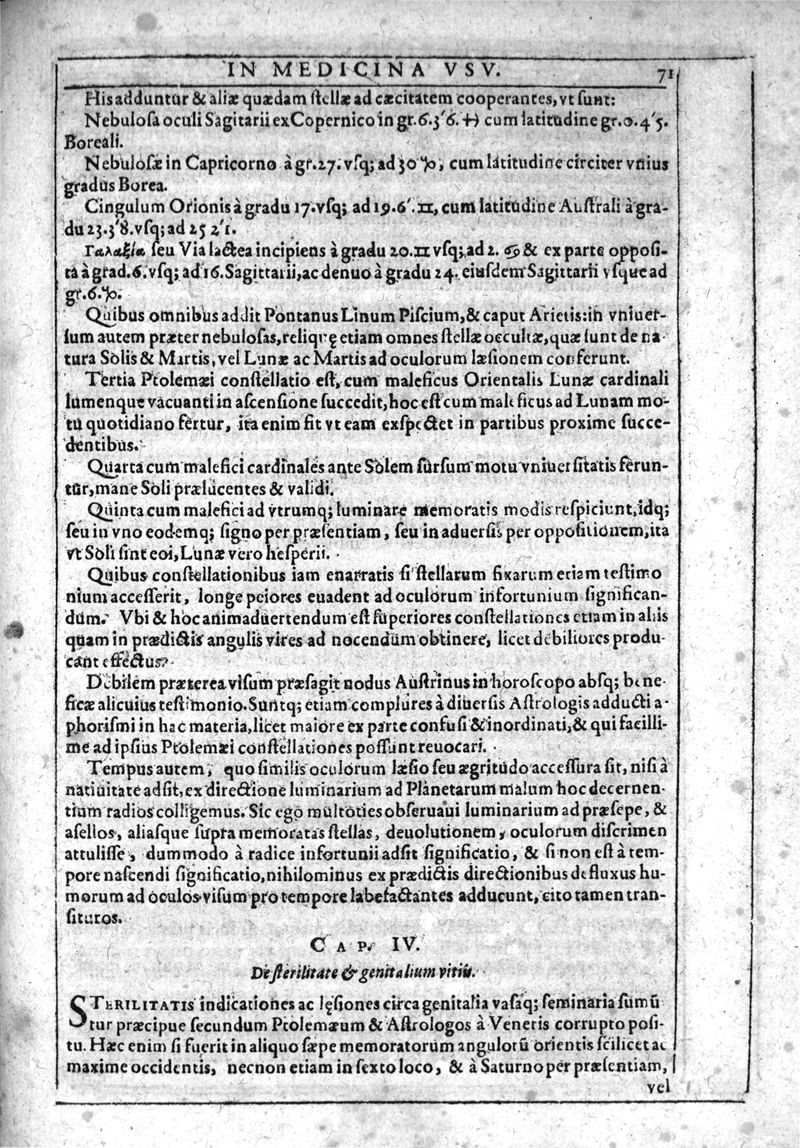 IN MEDICINA VSV. 71
His adduntur & aliæ quædam stellæ ad cæcitatem cooperantes, vt sunt:
Nebulosa oculi Sagitarii ex Copernico in gr. 6. 3′6. ♐ cum latitudine gr. 0. 4′5.
Boreali.
Nebulosæ in Capricorno à gr. 27. vsq; ad 30 ♑, cum latitudine circiter vnius
gradus Borea.
Cingulum Orionis à gradu 17. vsq; ad 19. 6′. ♊, cum latitudine Australi à gra-
du 23. 3′8. vsq; ad 25 2′1.
Γαλαξία seu Via lactea incipiens à gradu 20. ♊ vsq; ad 2. ♋ & ex parte opposi-
ta à grad. 6. vsq; ad 16. Sagittarii, ac denuo à gradu 24. eiusdem Sagittarii vsque ad
gr. 6. ♑.
Quibus omnibus addit Pontanus Linum Piscium, & caput Arietis: in vniuer-
sum autem præter nebulosas, reliquę etiam omnes stellæ occultæ, quæ sunt de na-
tura Solis & Martis, vel Lunæ ac Martis ad oculorum læsionem conferunt.
Tertia Ptolemæi constellatio est, cum maleficus Orientalis Lunæ cardinali
lumenque vacuanti in ascensione succedit, hoc est cum maleficus ad Lunam mo-
tu quotidiano fertur, ita enim fit vt eam exspectet in partibus proxime succe-
dentibus.
Quarta cum malefici cardinales ante Solem sursum motu vniuersitatis ferun-
tur, mane Soli prælucentes & validi.
Quinta cum malefici ad vtrumq; luminare memoratis modis respiciunt, idq;
seu in vno eodemq; signo per præsentiam, seu in aduersis per oppositionem, ita
vt Soli sint eoi, Lunæ vero hesperii.
Quibus constellationibus iam enarratis si stellarum fixarum etiam testimo
nium accesserit, longe peiores euadent ad oculorum infortunium significan-
dum. Vbi & hoc animaduertendum est superiores constellationes etiam in aliis
quam in prædictis angulis vires ad nocendum obtinere, licet debiliores produ-
cant effectus.
Debilem præterea visum præsagit nodus Austrinus in horoscopo absq; bene
ficæ alicuius testimonio. Suntq; etiam complures à diuersis Astrologis adducti a-
phorismi in hac materia, licet maiore ex parte confusi & inordinati, & qui facilli-
me ad ipsius Ptolemæi constellationes possunt reuocari.
Tempus autem, quo similis oculorum læsio seu ægritudo accessura sit, nisi à
natiuitate adsit, ex directione luminarium ad Planetarum malum hoc decernen-
tium radios colligemus. Sic ego multoties obseruaui luminarium ad præsepe, &
asellos, aliasque supra memoratas stellas, deuolutionem, oculorum discrimen
attulisse, dummodo à radice infortunii adsit significatio, & si non est à tem-
pore nascendi significatio, nihilominus ex prædictis directionibus defluxus hu-
morum ad oculos visum pro tempore labefactantes adducunt, cito tamen tran-
situros.
CAP. IV.
De sterilitate & genitalium vitiis.
STERILITATIS indicationes ac lęsiones circa genitalia vasaq; seminaria sumũ
tur præcipue secundum Ptolemæum & Astrologos à Veneris corrupto posi-
tu. Hæc enim si fuerit in aliquo sæpe memoratorum angulorũ orientis scilicet ac
maxime occidentis, necnon etiam in sexto loco, & à Saturno per præsentiam,
vel